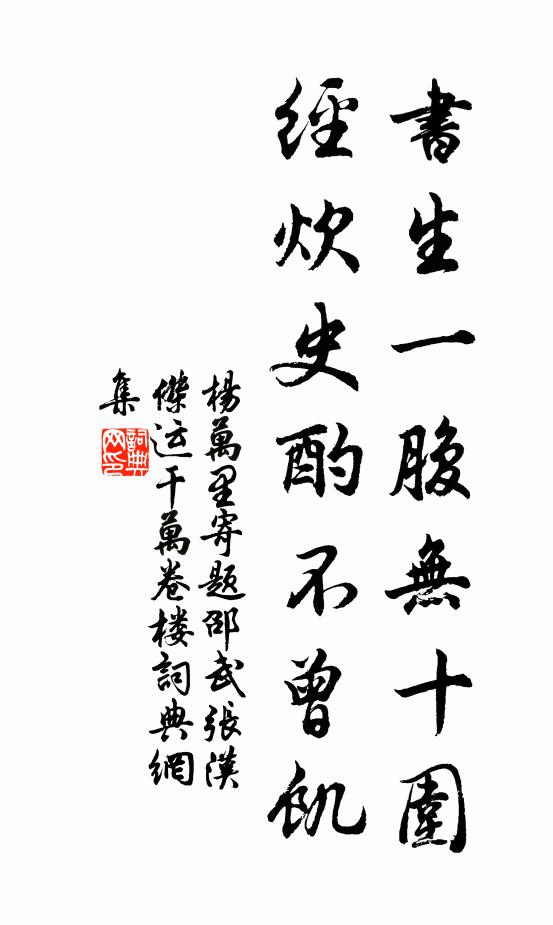 書生一腹無十圍
經炊史酌不曾飢
楊萬里寄題邵武張漢
傑运干萬卷楼詞典網
集
詞典
网印